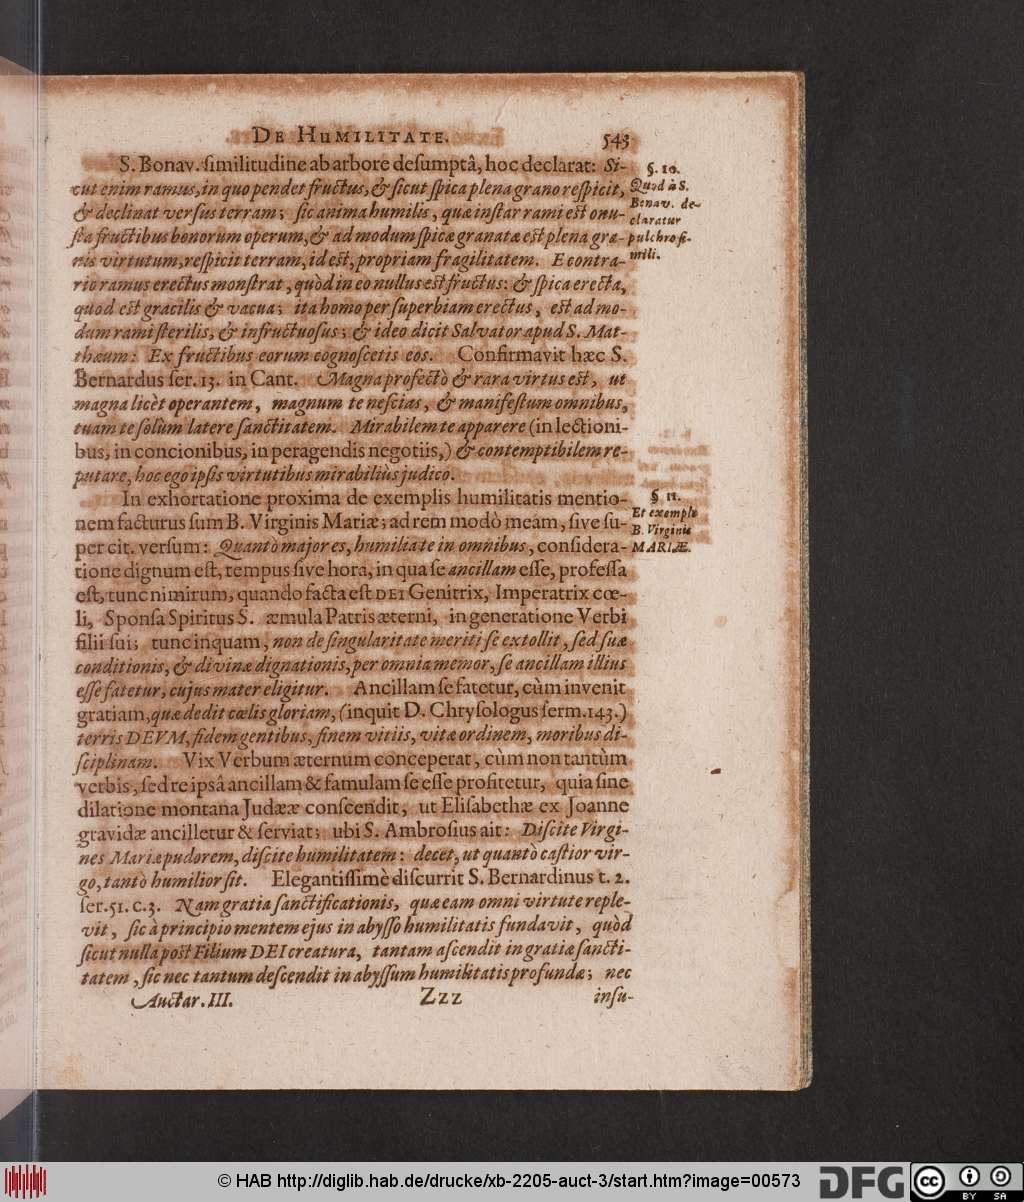 DE HUMILITATE. 543
S. Bonav. ſimilitudine ab arbore deſumptâ, hoc declarat: Si-
cut enim ramus, in quo pendet fructus, & ſicut ſpica plena grano reſpicit,
& declinat verſus terram; ſic anima humilis, quæ inſtar rami eſt onu-
ſta fructibus bonorum operum, & ad modum ſpicæ granatæ eſt plena gra-
nis virtutum, reſpicit terram, id eſt, propriam fragilitatem. E contra-
rio ramus erectus monſtrat, quòd in eo nullus eſt fructus: & ſpica erecta,
quòd eſt gracilis & vacua; ita homo per ſuperbiam erectus, eſt ad mo-
dum rami ſterilis, & infructuoſus; & ideo dicit Salvator apud S. Mat-
thæum: Ex fructibus eorum cognoſcetis eos. Confirmavit hæc S.
Bernardus ſer. 13. in Cant. Magna profectò & rara virtus eſt, ut
magna licèt operantem, magnum te neſcias, & manifeſtum omnibus,
tuam te ſolùm latere ſanctitatem. Mirabilem te apparere (in lectioni-
bus, in concionibus, in peragendis negotiis,) & contemptibilem re-
putare, hoc ego ipſis virtutibus mirabiliùs judico.
§. 10.
Quod à S.
Bonav. de-
claratur
pulchro ſi-
mili.
In exhortatione proxima de exemplis humilitatis mentio-
nem facturus ſum B. Virginis Mariæ; ad rem modò meam, ſive ſu-
per cit. verſum: Quantò major es, humilia te in omnibus, conſidera-
tione dignum eſt, tempus ſive hora, in qua ſe ancillam eſſe, profeſſa
eſt, tunc nimirum, quando facta eſt DEI Genitrix, Imperatrix cœ-
li, Sponſa Spiritus S. æmula Patris æterni, in generatione Verbi
filii ſui; tunc inquam, non de ſingularitate meriti ſe extollit, ſed ſuæ
conditionis, & divinæ dignationis, per omnia memor, ſe ancillam illius
eſſe fatetur, cujus mater eligitur. Ancillam ſe fatetur, cùm invenit
gratiam, quæ dedit cœlis gloriam, (inquit D. Chryſologus ſerm. 143.)
terris DEUM, fidem gentibus, finem vitiis, vitæ ordinem, moribus di-
ſciplinam. Vix Verbum æternum conceperat, cùm non tantùm
verbis, ſed re ipsâ ancillam & famulam ſe eſſe profitetur, quia ſine
dilatione montana Judææ conſcendit, ut Eliſabethæ ex Joanne
gravidæ ancilletur & ſerviat; ubi S. Ambroſius ait: Diſcite Virgi-
nes Mariæ pudorem, diſcite humilitatem: decet, ut quantò caſtior vir-
go, tantò humilior ſit. Elegantiſſimè diſcurrit S. Bernardinus t. 2.
ſer. 51. c. 3. Nam gratia ſanctificationis, quæ eam omni virtute reple-
vit, ſic à principio mentem ejus in abyſſo humilitatis fundavit, quòd
ſicut nulla poſt Filium DEI creatura, tantam aſcendit in gratiæ ſancti-
tatem, ſic nec tantum deſcendit in abyſſum humilitatis profundæ; nec
§ 11.
Et exemplo
B. Virginis
MARIÆ.
Auctar. III. Zzz inſu-
© HAB http://diglib.hab.de/drucke/xb-2205-auct-3/start.htm?image=00573
DFG
cc
BY SA